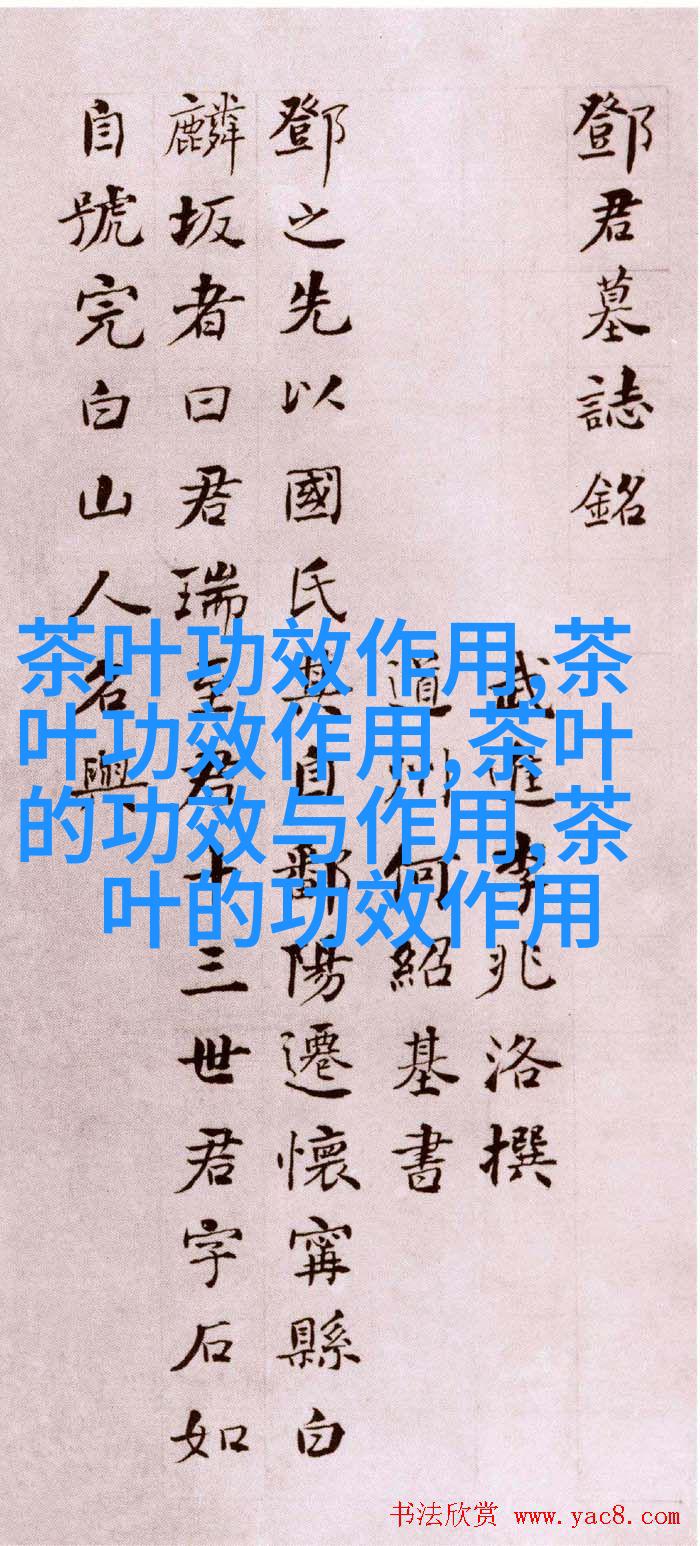 鄧君墓誌銘
武進李兆洛撰
道州何紹基書
鄧之先以國氏其自鄱陽遷懷甯縣白
麟坂者曰君瑞至君十三世君字石如
自號完白山人名與
茶叶功效作用,茶
叶功效作用,茶叶
的功效与作用,茶
叶的功效作用
书法欣赏 www.yac8.com